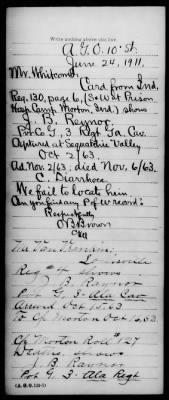 Write nothing above this line.
A.G.O. 10 St.
June 24, 1911.
Mr. Whitcomb,
Card from Ind.
Reg. 130, page 6, (3 West Prison
Hosp. Camp Morton, Ind.) shows
J. B. Raynor
Pvt Co G, 3 Regt Ga. Cav.
Captured at Sequatchie Valley
Oct 2/63.
Ad. Nov 2/63, died Nov. 6/63.
C. Diarrhoea
We fail to locate him.
Can you find any P of w record?
Respectfully
Brown
Clk
Louisville
Reg # 4 shows
J. B. Raynor
Pvt G. 3- Ala Cav
Oct 15-63
To Cp Morton Oct 16, 63.
Cp Morton Roll # 127
shows
J. B. Raynor
Pvt G. 3- Ala Regt
(A. G. O. 119-1)